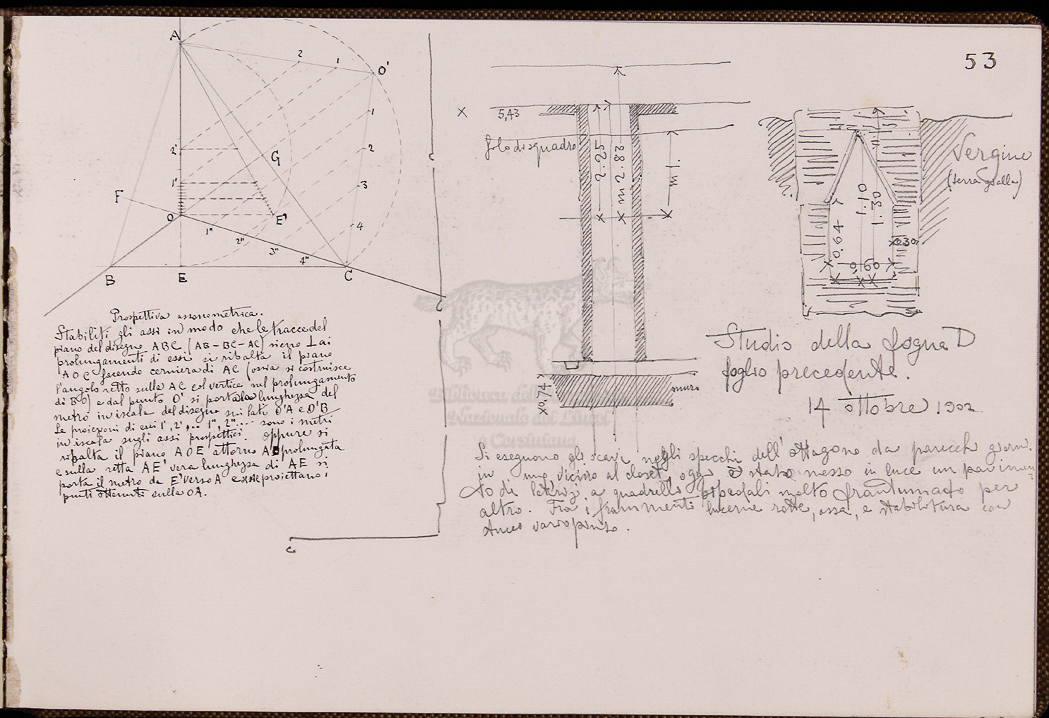 53
A
2
1
O'
1
2
3
4
G
2'
1'
F
O
E'
1"
2"
3"
4"
B
E
C
Prospettiva assonometrica.
Stabiliti gli assi in modo che le tracce del
piano del disegno ABC (AB-BC-AC) sieno ⊥ ai
prolungamenti di essi si ribalta il piano
AOC facendo cerniera di AC (ossia si costruisce
l'angolo retto sulla AC col vertice nel prolungamento
di BO) e dal punto O' si porta la lunghezza del
metro in iscala del disegno sui lati O'A e O'B
Le proiezioni di cui 1', 2',... 1", 2",... sono i metri
in iscala sugli assi prospettici. oppure si
ribalta il piano AOE attorno A prolungata
e sulla retta AE' vera lunghezza di AE si
porta il metro da E' verso A e si proiettano i
punti ottenuti sulla OA.
5,43
filo di squadro
2.25
m 2.83
m 1.
0,74
Vergine
(terra gialla)
0.64
1.10
1.30
0,60
0.30
Studio della fogna D
foglio precedente.
14 ottobre 1902
Si eseguono gli scavi negli specchi dell'ottagono da parecchi giorni.
in uno vicino al closet, oggi è stato messo in luce un pavimen
to di laterizi a quadrelle bipedali molto frantumato per
altro. Fra i frammenti lucerne rotte, ossa, e stabilitura con
stucco variopinto.
Biblioteca dell
Nazionale dei Lincei
e Corsiniana